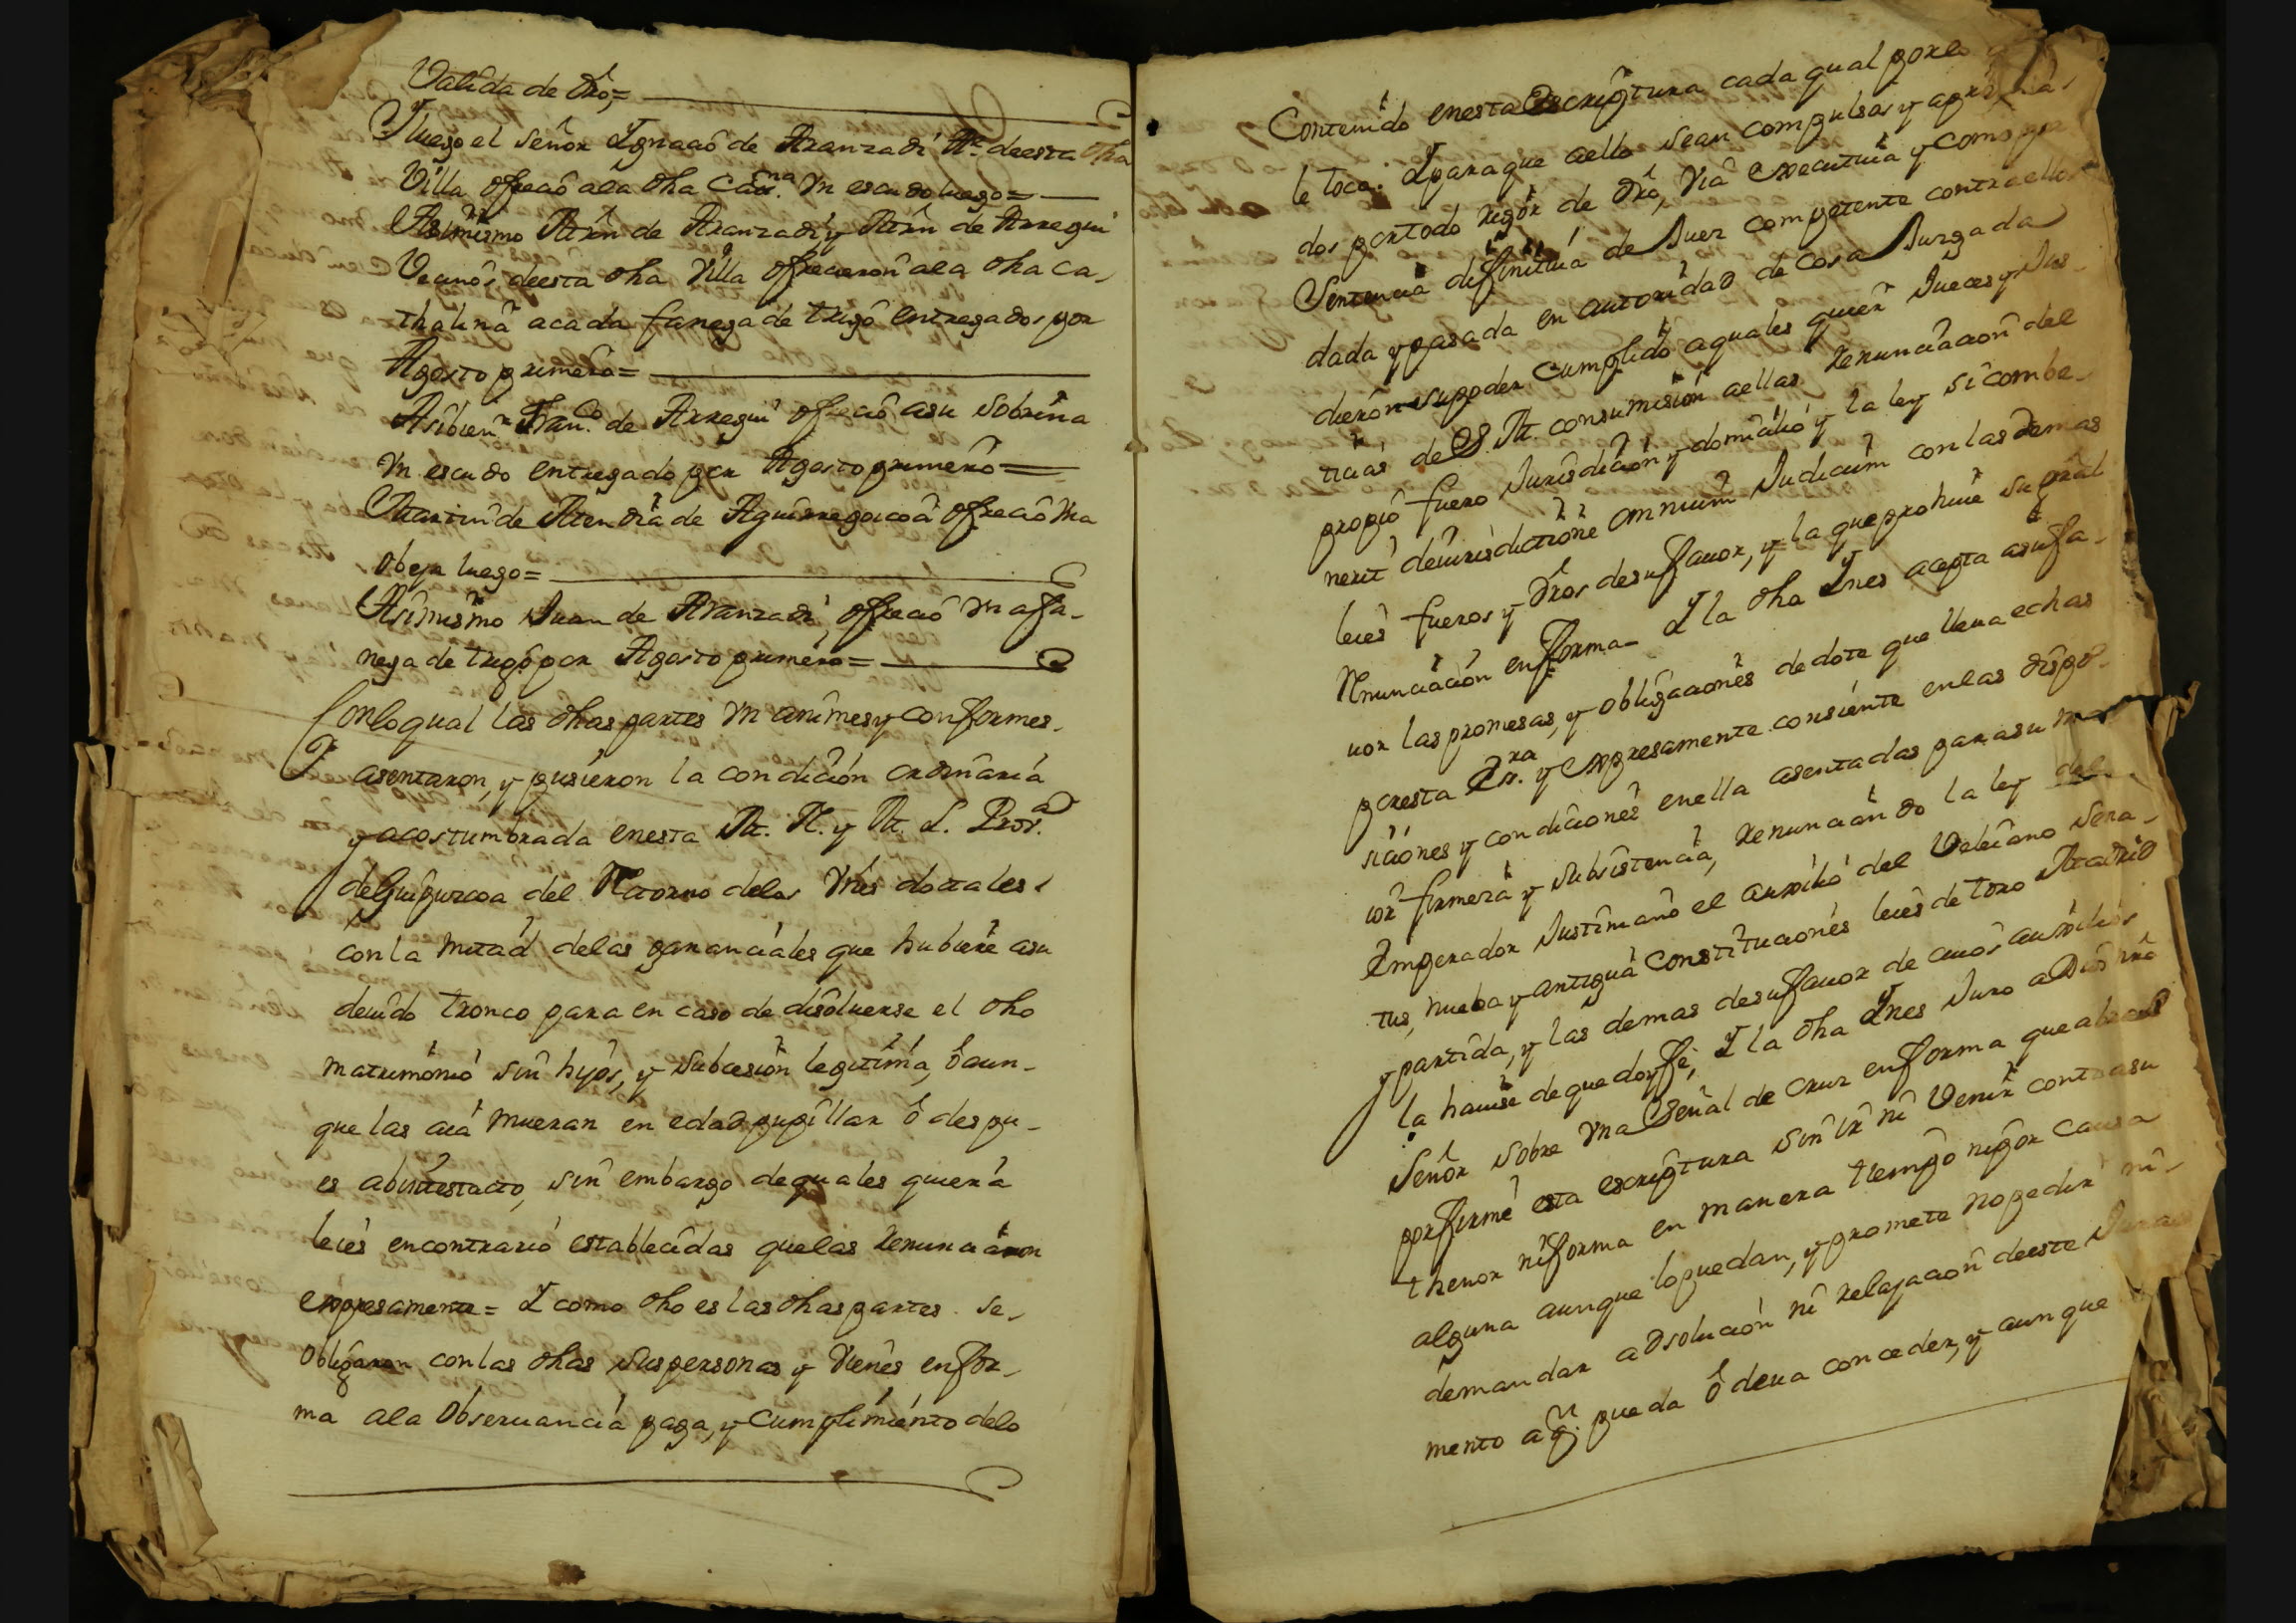 Valida de dro=
Y luego el señor Ygnacio de Aranzadi Alc. de esta dha
Villa ofrecio ala dha Catna. Vn escudo luego=
Asimismo Mrn de Aranzadi, y Mrn de Arregui
Vecinos de esta dha Villa ofrecieron ala dha Ca-
thalina acada fanega de trigo entregados por
Agosto primero=
Asibien Franco. de Arregui ofrecio asu sobrina
Vn escudo entregado por Agosto primero=
Martin de Mendia de Aguirregoicoa ofrecio Vna
obeja luego=
Asimismo Juan de Aranzadi, ofrecio Vna fa-
nega de trigo por Agosto primero=
Conloqual las dhas partes Vn animes y conformes
asentaron, y pusieron la condicion ordinaria
y acostumbrada enesta M. N. y M. L. Prov.a
de Guipuzcoa del Retorno delos Vnes dotales
con la mitad delas gananciales que hubiere asu
deuido tronco para en caso de disoluerse el dho
matrimonio sin hijos, y subcesion legitima, ò aun-
que las aia mueran en edad pupillar ò despu-
es abintestato, sin embargo de quales quiera
leies encontrario establecidas quelas Renunciaron
expresamente= Y como dho es las dhas partes se-
obligaron con las dhas sus personas y Vienes enfor-
ma ala Obseruancia paga, y cumplimiento delo
Contenido enesta Escriptura cada qual porlo
le toca. Y para que aello sean compulsos y apremia-
dos por todo rigor de dro, Via executiua y como por
Sentencia difinitiua de Juez competente contra ellos
dada y pasada en autoridad de cosa Juzgada
dieron su poder cumplido a quales quier Jueces y Jus-
ticias de S. M. con sumision aellas Renunciacion del
propio fuero Jurisdicion y domicilio y la ley si combe-
nerit de iurisdictione omnium Judicum con las demas
leies fueros y dros de su fauor, y la que prohiue su gral
Renunciacion en forma= Y la dha Ynes acepta asu fa-
uor las promesas, y obligaciones de dote que lleua echas
por esta Esra. y expresamente consiente enlas dispo-
siciones y condiciones enella asentadas para su ma-
ior firmeza y subsistencia, Renunciando la ley del
Emperador Justiniano el auxilio del Veleiano Sena-
tus, nueba y antigua Constituciones leies de toro Madrid
y partida, y las demas desu fauor de cuios auxilios
la hauise de que doy fe, Y la dha Ynes Juro a Dios nro
Señor sobre Vna Señal de Cruz en forma que abra
por firme esta escriptura sin ir ni Venir contra su
thenor ni forma en manera tiempo ni por causa
alguna aunque lo puedan, y promete no pedir ni-
demandar absolucion ni relajacion de este Jura-
mento a qn. pueda ò deua conceder, y aunque